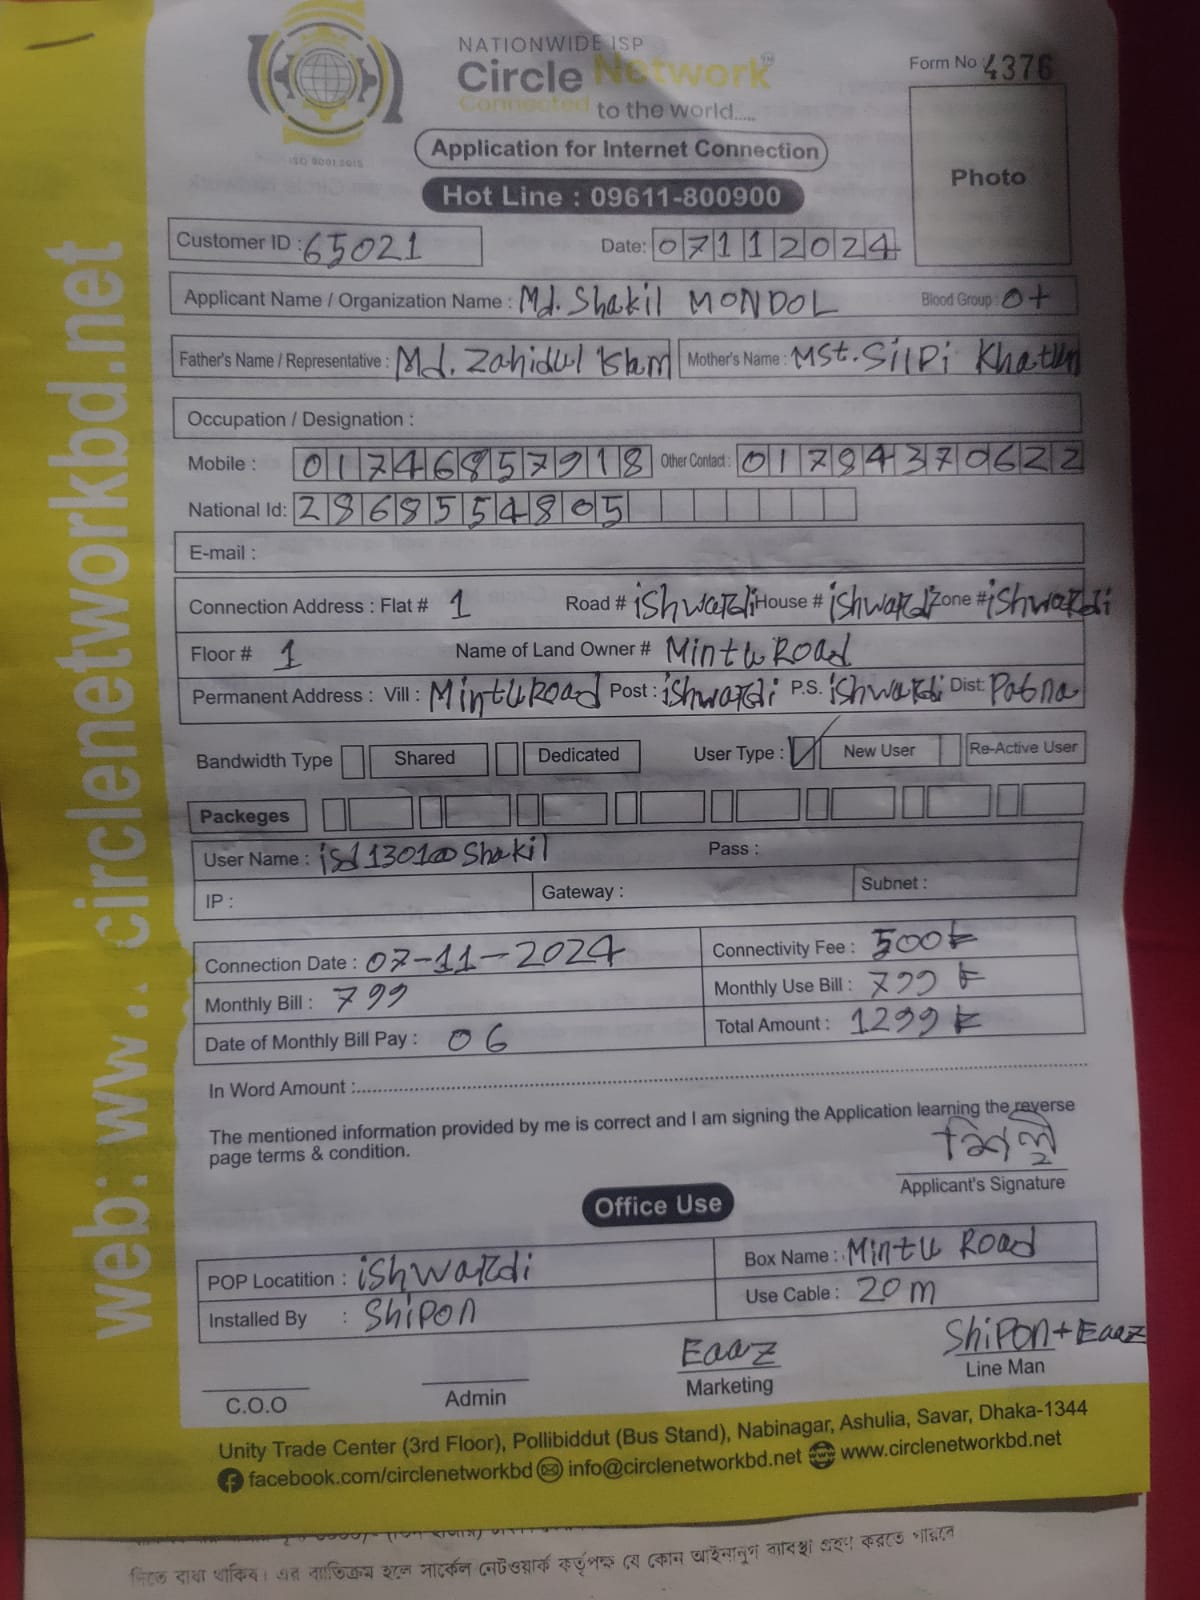 NATIONWIDE ISP
Circle Network
Connected to the world.....
ISO 9001:2015
Form No : 4376
Photo
Application for Internet Connection
Hot Line : 09611-800900
Customer ID : 65021 Date: 07112024
Applicant Name / Organization Name : Md. Shakil MONDOL Blood Group : O+
Father's Name / Representative : Md. Zahidul Islam Mother's Name : MSt. Silpi Khatun
Occupation / Designation :
Mobile : 01746857918 Other Contact : 01794370622
National Id: 2868554805
E-mail :
Connection Address : Flat # 1 Road # ishwardi House # ishwardi Zone # ishwardi
Floor # 1 Name of Land Owner # Mintu Road
Permanent Address : Vill : Mintu Road Post : ishwardi P.S. ishwardi Dist: Pabna
Bandwidth Type Shared Dedicated User Type : New User Re-Active User
Packeges
User Name : isd1301@Shakil Pass :
IP : Gateway : Subnet :
Connection Date : 07-11-2024 Connectivity Fee : 500 ৳
Monthly Bill : 799 Monthly Use Bill : 799 ৳
Date of Monthly Bill Pay : 06 Total Amount : 1299 ৳
In Word Amount :
The mentioned information provided by me is correct and I am signing the Application learning the reverse
page terms & condition.
Applicant's Signature
Office Use
POP Locatition : ishwardi Box Name : Mintu Road
Installed By : Shipon Use Cable : 20 m
Eaaz Shipon + Eaaz
C.O.O Admin Marketing Line Man
Unity Trade Center (3rd Floor), Pollibiddut (Bus Stand), Nabinagar, Ashulia, Savar, Dhaka-1344
facebook.com/circlenetworkbd info@circlenetworkbd.net www.circlenetworkbd.net
web: www.circlenetworkbd.net
দিতে বাধ্য থাকিব। এর ব্যতিক্রম হলে সার্কেল নেটওয়ার্ক কর্তৃপক্ষ যে কোন আইনানুগ ব্যবস্থা গ্রহণ করতে পারবে